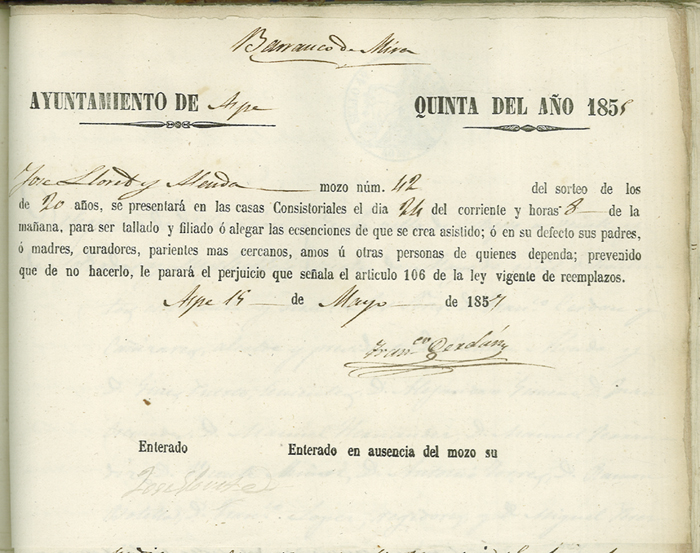 Barranco de Mira
AYUNTAMIENTO DE Aspe QUINTA DEL AÑO 185
Jose Lloret y Alenda mozo núm. 42 del sorteo de los
de 20 años, se presentará en las casas Consistoriales el dia 24 del corriente y horas 8 de la
mañana, para ser tallado y filiado ó alegar las ecsenciones de que se crea asistido; ó en su defecto sus padres,
ó madres, curadores, parientes mas cercanos, amos ú otras personas de quienes dependa; prevenido
que de no hacerlo, le parará el perjuicio que señala el articulo 106 de la ley vigente de reemplazos.
Aspe 15 de Mayo de 1857
Fran.co
Enterado Enterado en ausencia del mozo su
Jose